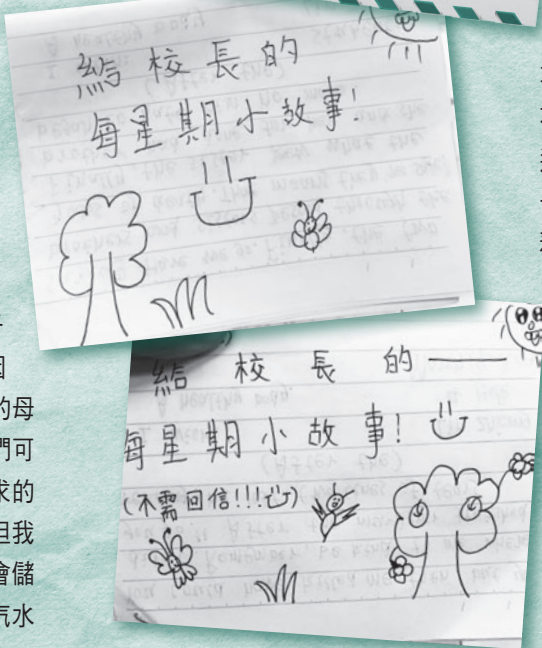 給校長的
每星期小故事!
給 校 長 的 ——
每星期小故事!
(不需回信!!!)
的母
們可
求的
但我
會儲
氣水